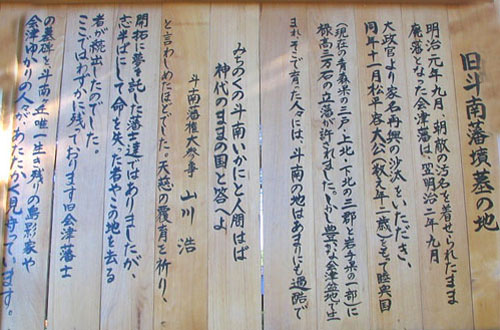 旧斗南藩墳墓の地
明治元年九月、朝敵の汚名を着せられたまま
廃落となった会津藩は、翌明治二年九月
大政官より家名再興の沙汰をいただき、
同年十一月松平容大公(数え年二歳)をもって陸奥国
(現在の青森県の三戸・上北・下北の三郡と岩手県の一部)に
禄高三万石の立藩が許されました。しかし、豊かな会津盆地で生
まれ、そこで育った人々には、斗南の地はあまりにも過酷で
みちのくの斗南いかにと人問はば
神代のままの国と答へよ
斗南藩権大参事 山川 浩
と言わしめたほどでした。天慈の覆育を祈り、
開拓に夢を託した藩士達ではありましたが、
志半ばにして命を失った者やこの地を去る
者が続出したのでした。
ここではわずかに残っております旧会津藩士
の墓碑を斗南ヶ丘唯一生き残りの島影家や
会津ゆかりの人々があたたかく見守っています。